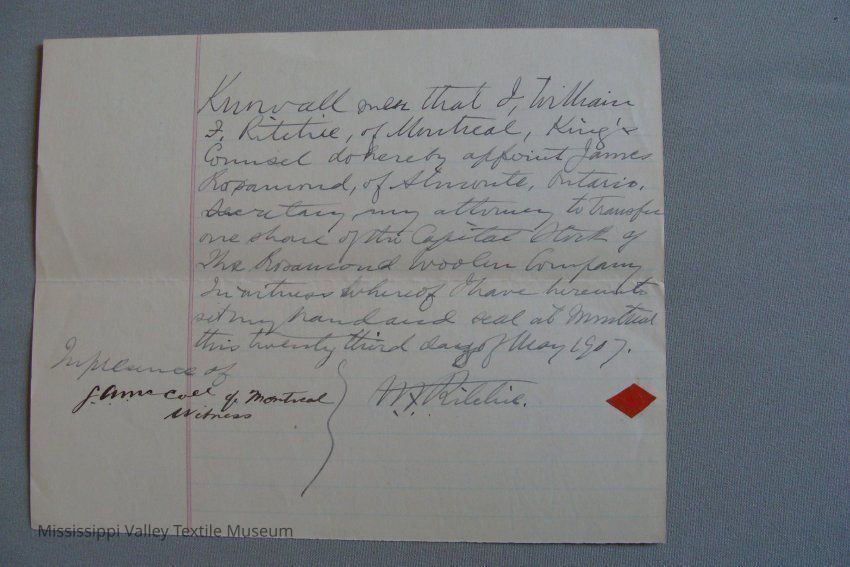 Know all men that I, William
F. Ritchie, of Montreal, King's
Counsel do hereby appoint James
Rosamond, of Almonte, Ontario,
secretary my attorney to transfer
one share of the Capital Stock of
The Rosamond Woolen Company
In witness whereof I have hereunto
set my hand and seal at Montreal
this twenty third day of May 1907.
In presence of
of Montreal
Witness
W.F. Ritchie.
Mississippi Valley Textile Museum